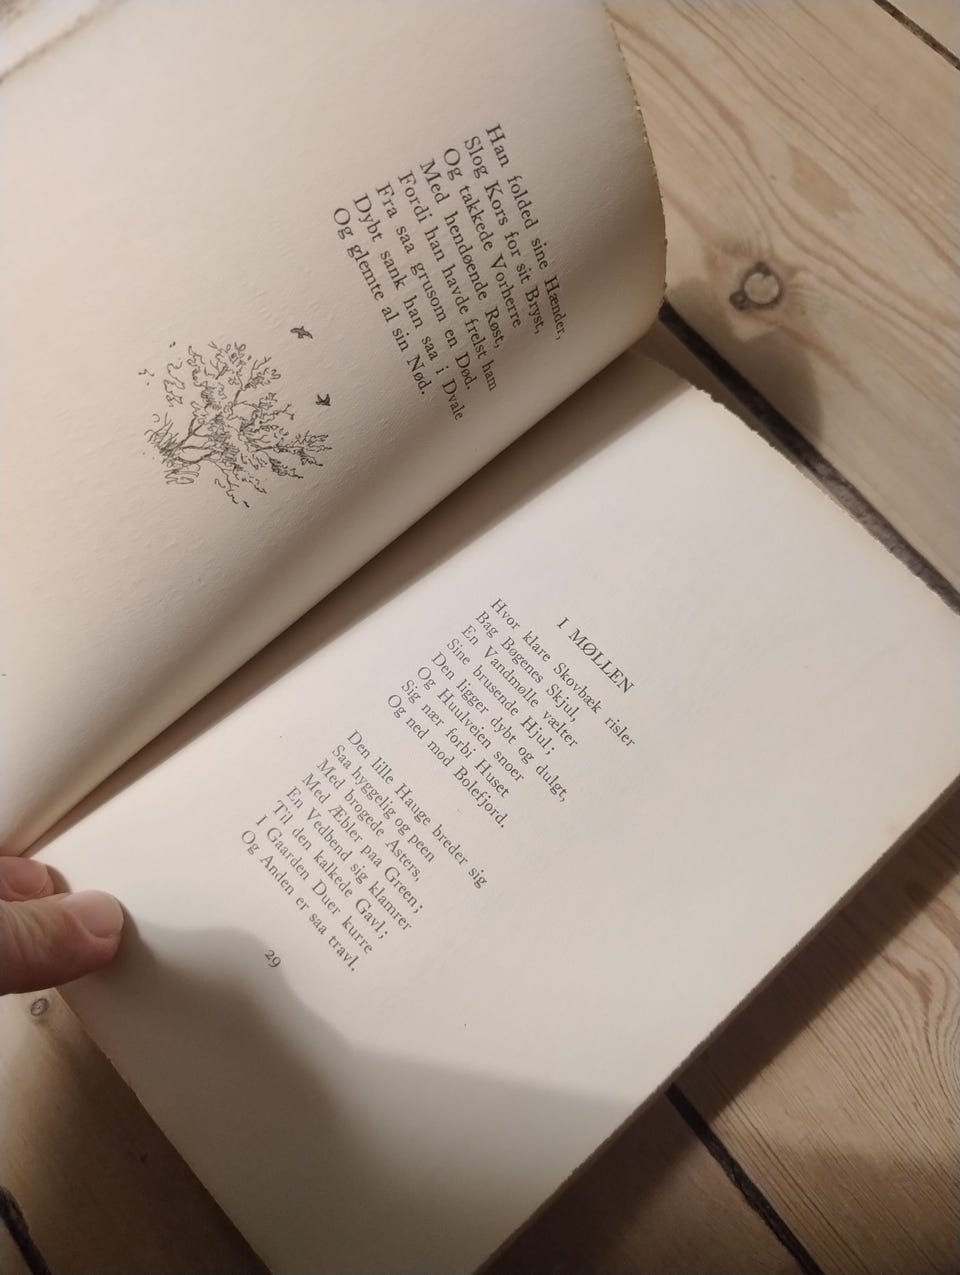 Han folded sine Hænder,
Slog Kors for sit Bryst,
Og takkede Vorherre
Med hendøende Røst,
Fordi han havde frelst ham
Fra saa grusom en Død.
Dybt sank han saa i Dvale
Og glemte al sin Nød.
I MØLLEN
Hvor klare Skovbæk risler
Bag Bøgenes Skjul,
En Vandmølle vælter
Sine brusende Hjul;
Den ligger dybt og dulgt,
Og Huulveien snoer
Sig nær forbi Huset
Og ned mod Bolefjord.
Den lille Hauge breder sig
Saa hyggelig og peen
Med brogede Asters,
Med Æbler paa Green;
En Vedbend sig klamrer
Til den kalkede Gavl;
I Gaarden Duer kurre
Og Anden er saa travl.
29